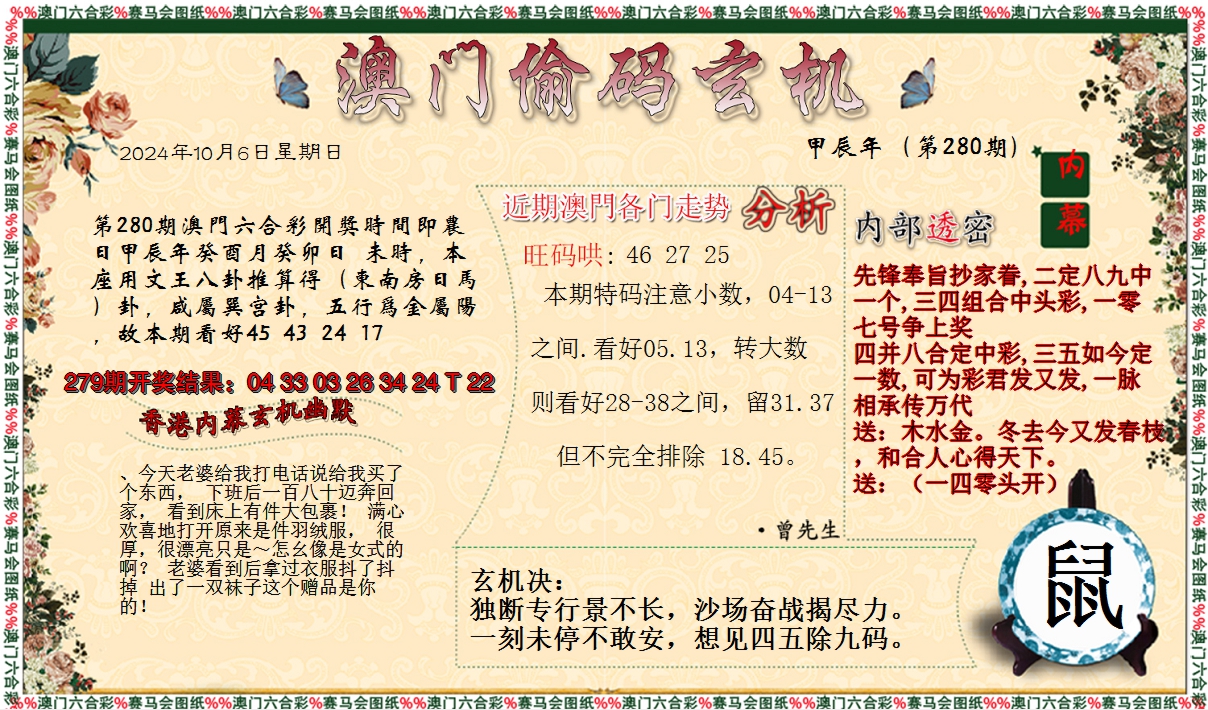 %%澳门六合彩%赛马会图纸%%澳门六合彩%赛马会图纸%%澳门六合彩%赛马会图纸%%澳门六合彩%赛马会图纸%%澳门六合彩%赛马会图纸%%澳门六合彩%赛马会图纸%%
澳门偷码玄机
2024年10月6日星期日
甲辰年（第280期）
内
幕
第280期澳門六合彩開獎時間即農
日甲辰年癸酉月癸卯日 未時，本
座用文王八卦推算得（東南房日馬
）卦，咸屬巽宫卦，五行爲金屬陽
，故本期看好45 43 24 17
279期开奖结果：04 33 03 26 34 24 T 22
香港内幕玄机幽默
、今天老婆给我打电话说给我买了
个东西， 下班后一百八十迈奔回
家， 看到床上有件大包裹！ 满心
欢喜地打开原来是件羽绒服， 很
厚，很漂亮只是～怎幺像是女式的
啊？ 老婆看到后拿过衣服抖了抖
掉 出了一双袜子这个赠品是你
的！
近期澳門各门走势 分析
旺码哄: 46 27 25
本期特码注意小数，04-13
之间.看好05.13，转大数
则看好28-38之间，留31.37
但不完全排除 18.45。
·曾先生
内部透密
先锋奉旨抄家眷,二定八九中
一个,三四组合中头彩,一零
七号争上奖
四并八合定中彩,三五如今定
一数,可为彩君发又发,一脉
相承传万代
送：木水金。冬去今又发春枝
，和合人心得天下。
送：（一四零头开）
玄机决：
独断专行景不长，沙场奋战揭尽力。
一刻未停不敢安，想见四五除九码。
鼠
%%澳门六合彩%赛马会图纸%%澳门六合彩%赛马会图纸%%澳门六合彩%赛马会图纸%%澳门六合彩%赛马会图纸%%澳门六合彩%赛马会图纸%%澳门六合彩%赛马会图纸%%